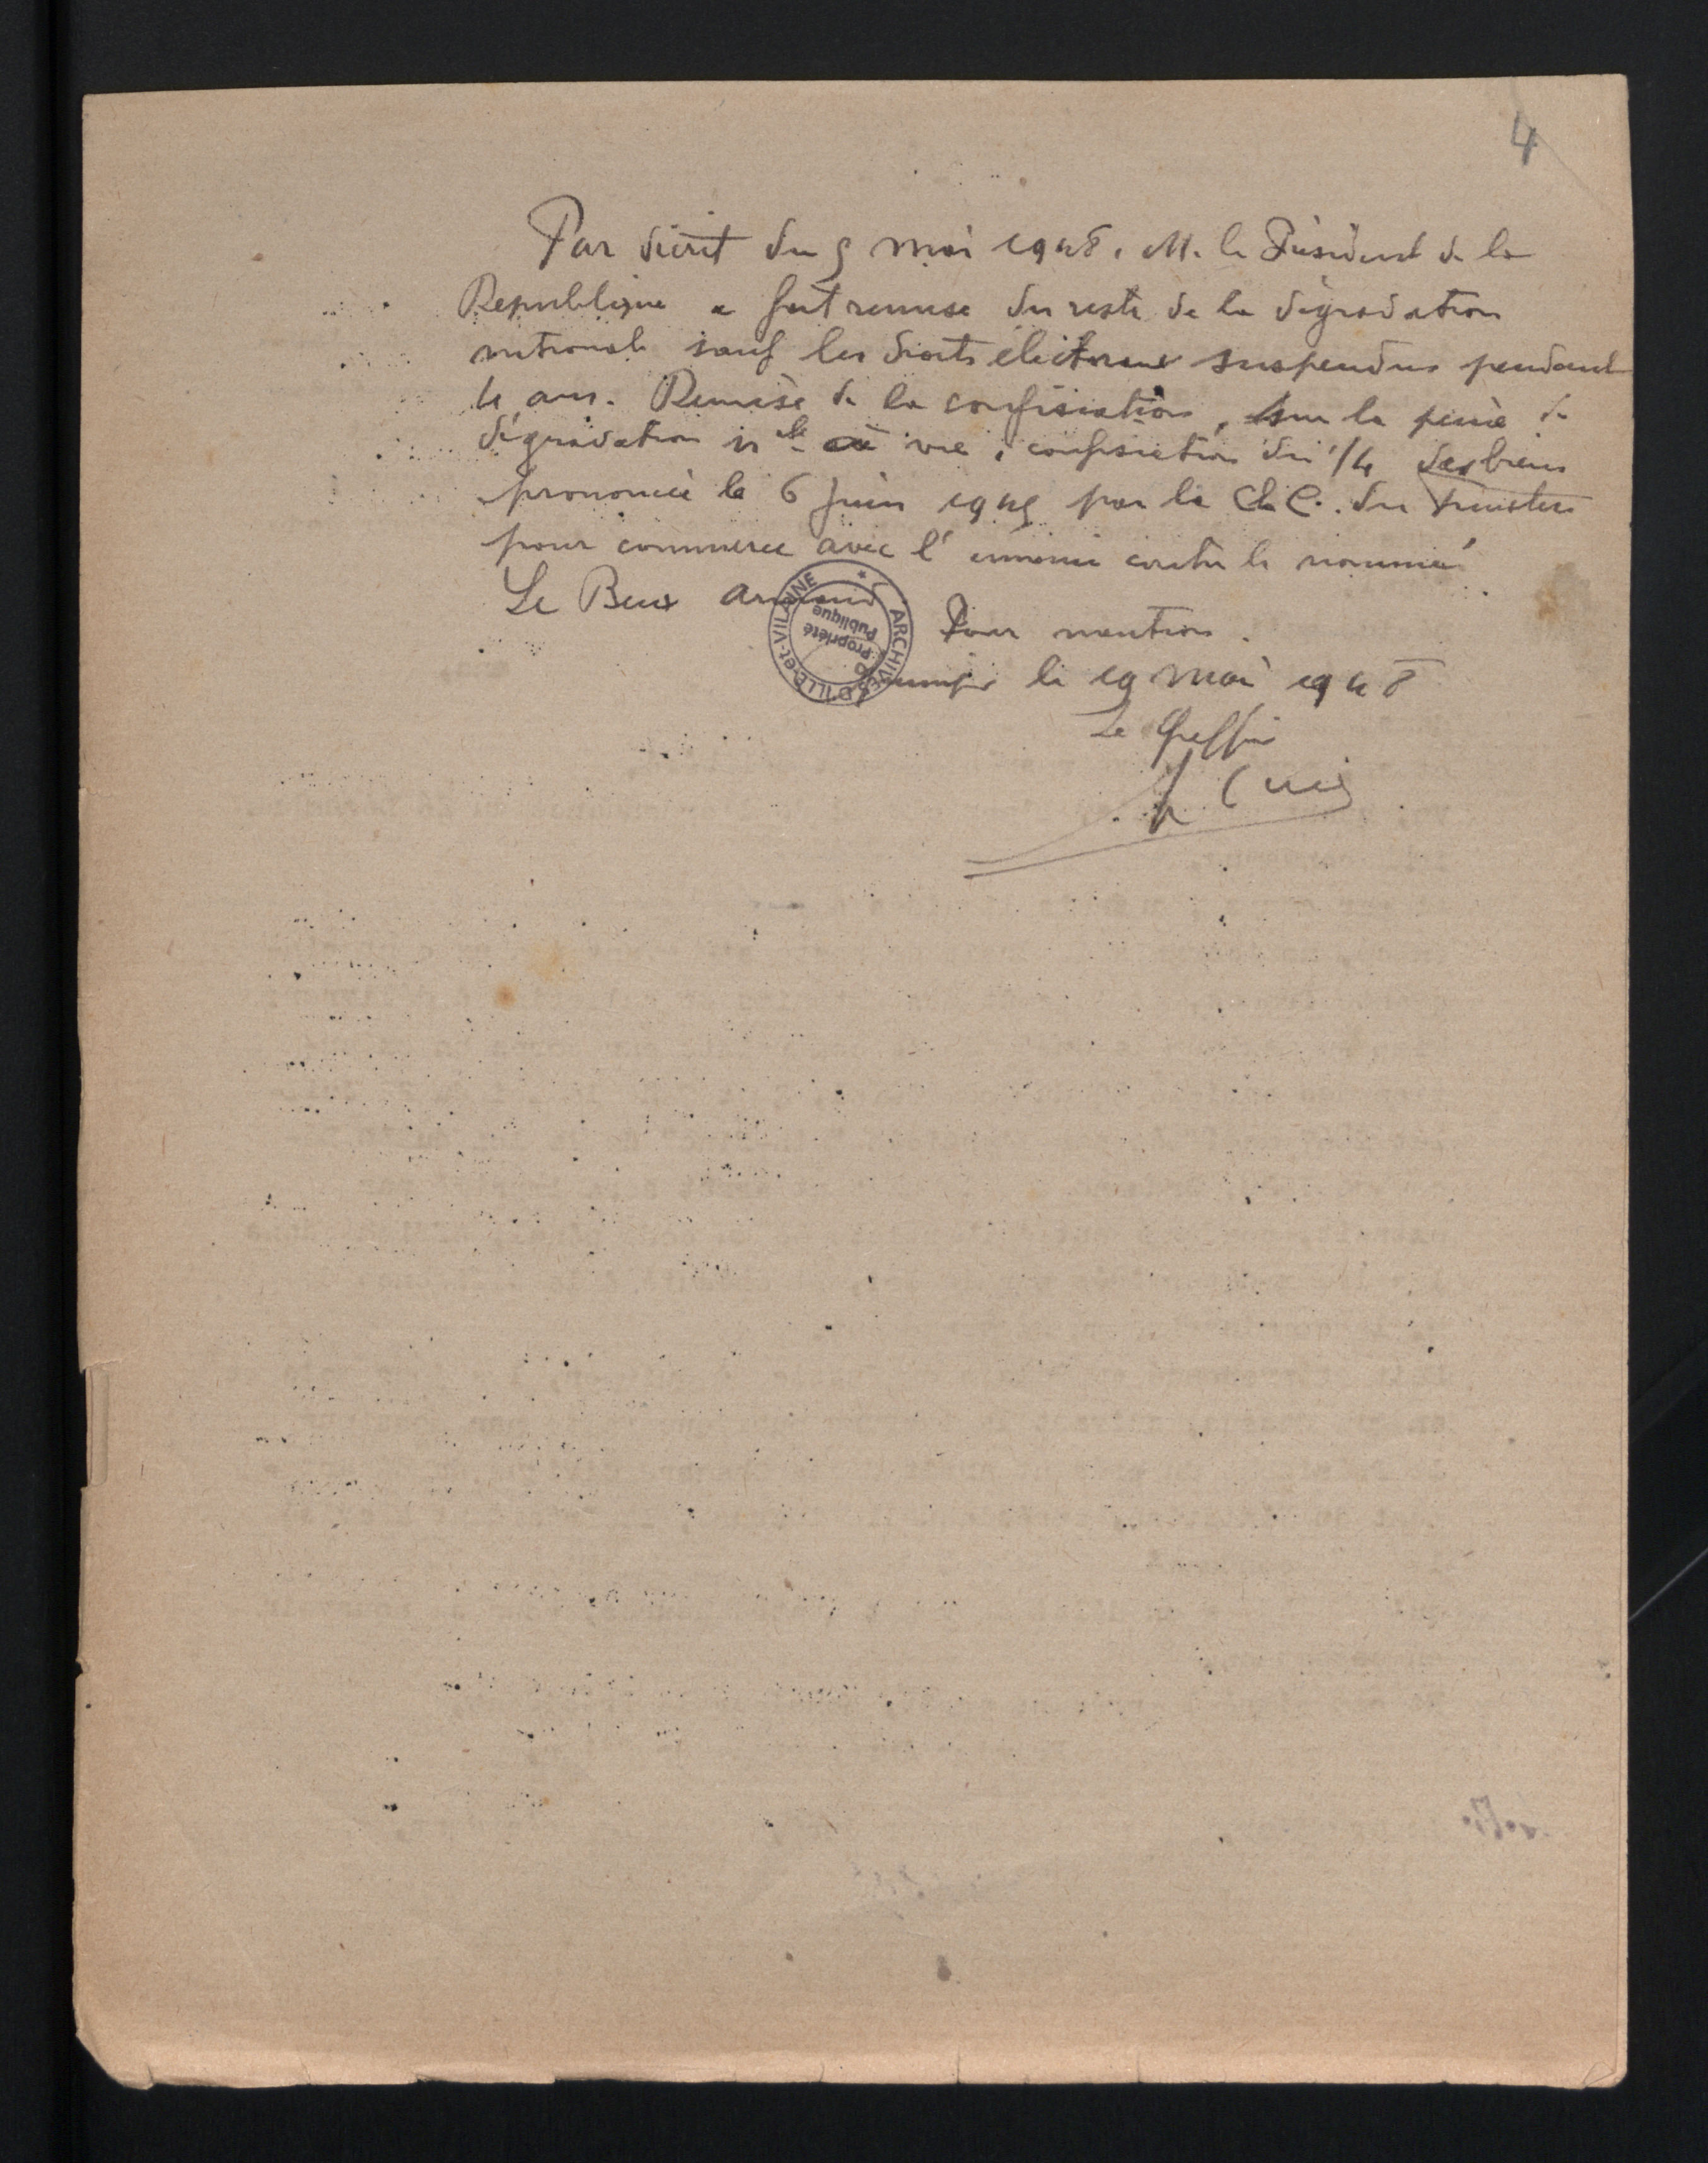 4
Par décret du 5 mai 1948, M. le Président de la
Republique a fait remise du reste de la dégradation
nationale sauf les droits électoraux suspendus pendant
4 ans. Remise de la confiscation, sur la peine de
dégradation nle à vie, confiscation du 1/4 des biens
prononcée le 6 Juin 1945 par la Ch. C. du Finistère
pour commerce avec l'ennemi contre le nommé
Le Beux Armand
Pour mention.
le 19 mai 1948
Le Greffier
ARCHIVES D'ILLE-et-VILAINE
Propriété
Publique